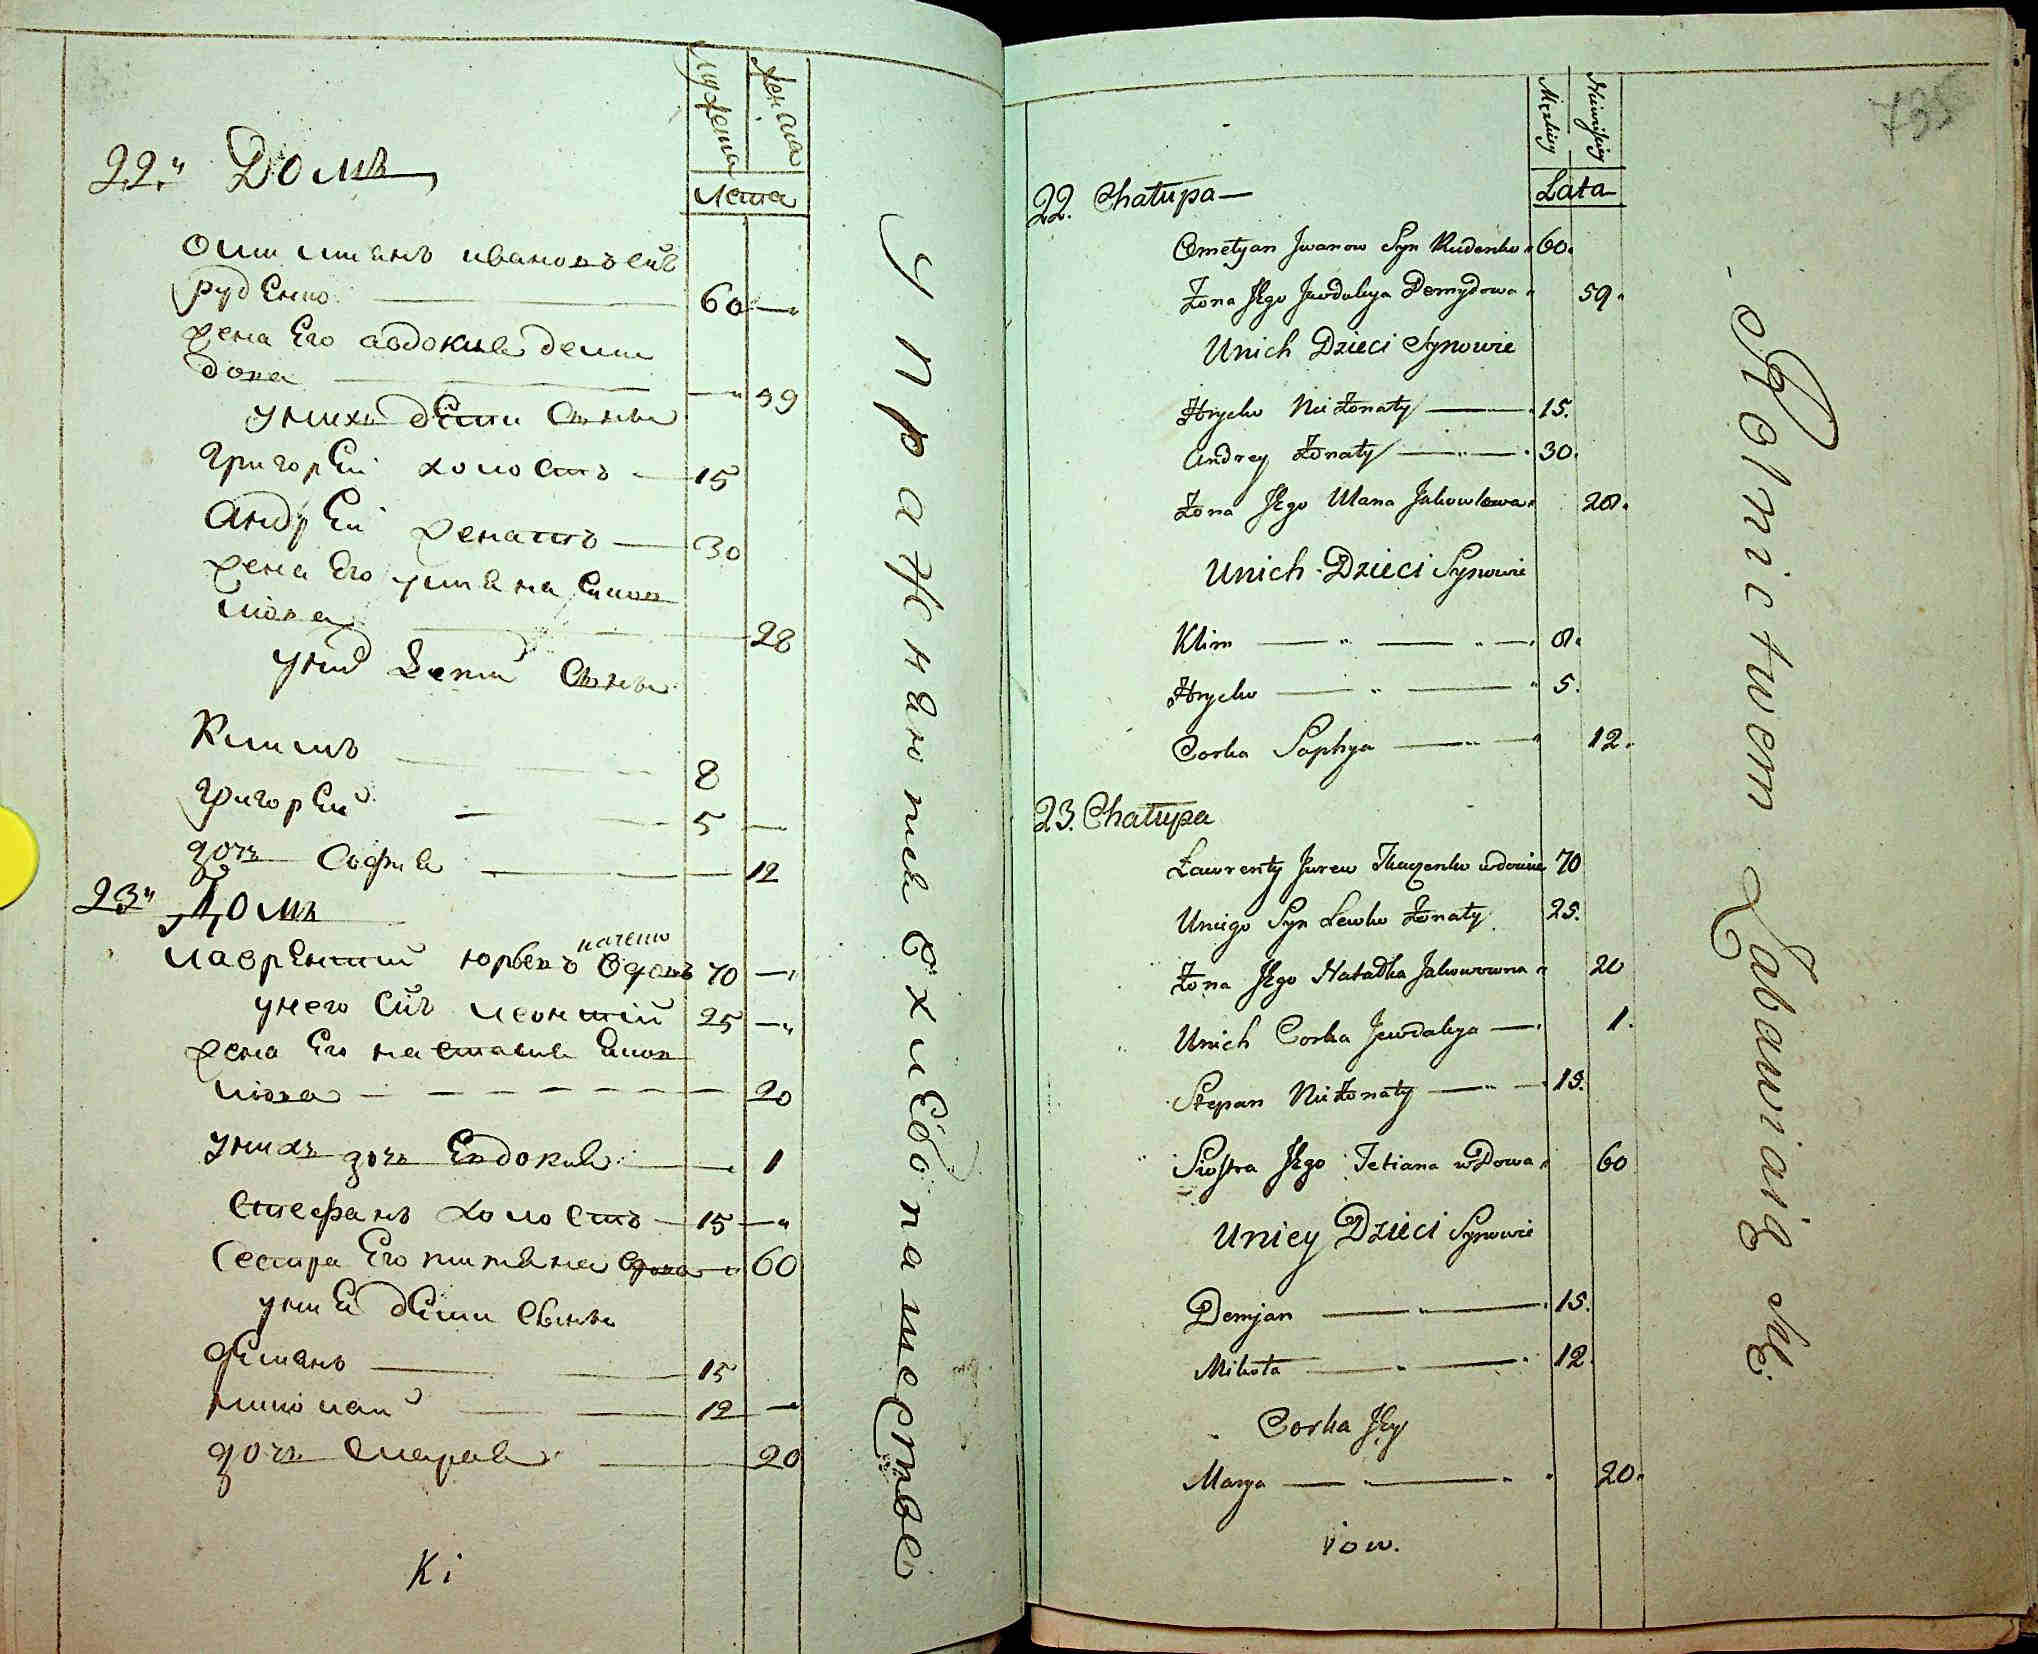 мужеска
женска
Лета
22" Домъ
Омилиянъ Ивановъ сынъ
Руденко — 60 —
жена Его авдокия деми
дова — 59
у нихъ дети сыны
Григорей холостъ — 15
Андрей женатъ — 30
жена Его улияна яков
лева — 28
у них дети сыны
Климъ — 8
Григорей — 5 —
дочь София — 12
23" Домъ
ткаченко
Лаврентий юрьевъ вдовъ 70 —
у него сынъ леонтий 25 —
жена Его наталия яков
лева — 20
у нихъ дочь Евдокия — 1
Стефанъ холостъ — 15 —
Сестра Его титяна вдова — 60
у ней дети сыны
демянъ — 15
николай — 12 —
дочь Марья — 20
Ki
Упражняются в хлебопашестве
735
Męzkiey
Niewiesciey
Lata
22. Chałupa —
Ometyan Iwanow Syn Rudenko 60.
Żona Jego Jewdokya Demydowa 59.
Unich Dzieci Synowie
Hrycko Nieżonaty — 15.
Andrey Żonaty — 30.
Żona Jego Ulana Jakowlewa 28.
Unich Dzieci Synowie
Klim — 8.
Hrycko — 5.
Corka Sophya — 12.
23. Chałupa
Ławrenty Jurew Tkaczenko wdowiec 70
Uniego Syn Lewko Żonaty 25.
Żona Jego Natalka Jakowowna 20
Unich Corka Jewdokya — 1.
Stepan Nieżonaty — 15.
Siostra Jego Tetiana wdowa 60
Uniey Dzieci Synowie
Demjan — 15.
Mikoła — 12.
Corka Jey
Marya — 20.
iow.
Rolnictwem Zabawiaią się.